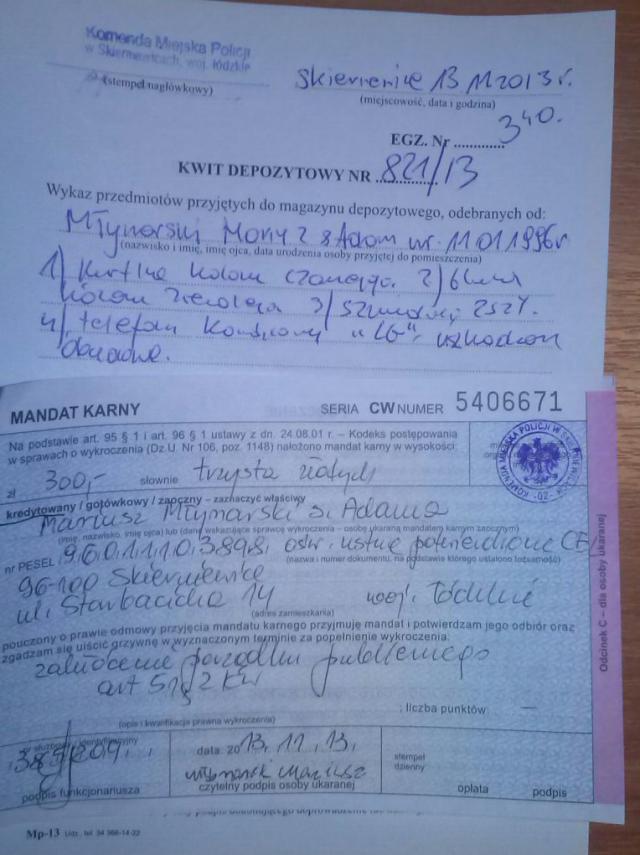 Komenda Miejska Policji
w Skierniewicach, woj. łódzkie
(stempel nagłówkowy)
Skierniewice 13 11 2013 r.
(miejscowość, data i godzina)
EGZ. Nr 340.
KWIT DEPOZYTOWY NR 821/13
Wykaz przedmiotów przyjętych do magazynu depozytowego, odebranych od:
Młynarski s Adam ur. 11 01 1996r
(nazwisko i imię, imię ojca, data urodzenia osoby przyjętej do pomieszczenia)
1) Kurtka koloru czarnego 2)
koloru 3) 2szt.
4) telefon komórkowy "LG",
MANDAT KARNY SERIA CW NUMER 5406671
Na podstawie art. 95 § 1 i art. 96 § 1 ustawy z dn. 24.08.01 r. – Kodeks postępowania
w sprawach o wykroczenia (Dz.U. Nr 106, poz. 1148) nałożono mandat karny w wysokości:
zł 300,- słownie trzysta złotych
kredytowany / gotówkowy / zaoczny – zaznaczyć właściwy
Mariusz Młynarski s. Adama
(imię, nazwisko, imię ojca) lub (dane wskazujące sprawcę wykroczenia – osobę ukaraną mandatem karnym zaocznym)
nr PESEL ustne potwierdzone
(nazwa i numer dokumentu, na podstawie którego ustalono tożsamość)
96-100 Skierniewice
ul. 14 woj. łódzkie
(adres zamieszkania)
pouczony o prawie odmowy przyjęcia mandatu karnego przyjmuję mandat i potwierdzam jego odbiór oraz
zgadzam się uiścić grzywnę w wyznaczonym terminie za popełnienie wykroczenia:
zakłócenie porządku publicznego
art 51 § 2 KW
liczba punktów: —
(opis i kwalifikacja prawna wykroczenia)
data: 2013.11.13.
Młynarski Mariusz
podpis funkcjonariusza
czytelny podpis osoby ukaranej
stempel
dzienny
opłata
podpis
Odcinek C – dla osoby ukaranej
Mp-13